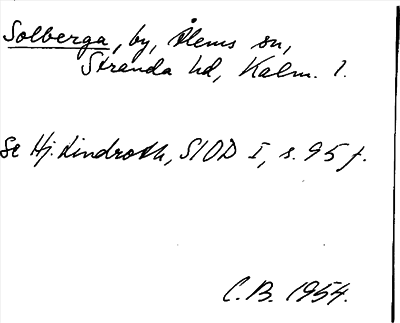 Solberga, by, Ålems sn,
Stranda hd, Kalm. l.
Se Hj. Lindroth, SIOD I, s. 95 f.
C.B. 1954.